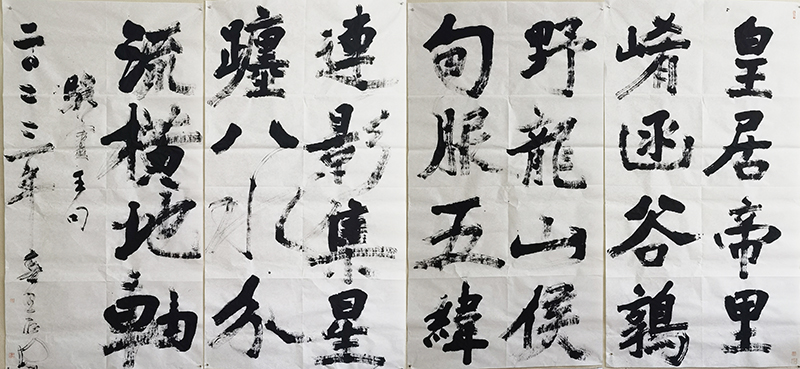 皇居帝里
崤函谷鶉
野龍山侯
甸服五緯
連影集星
躔八水分
流橫地軸
駱賓王句